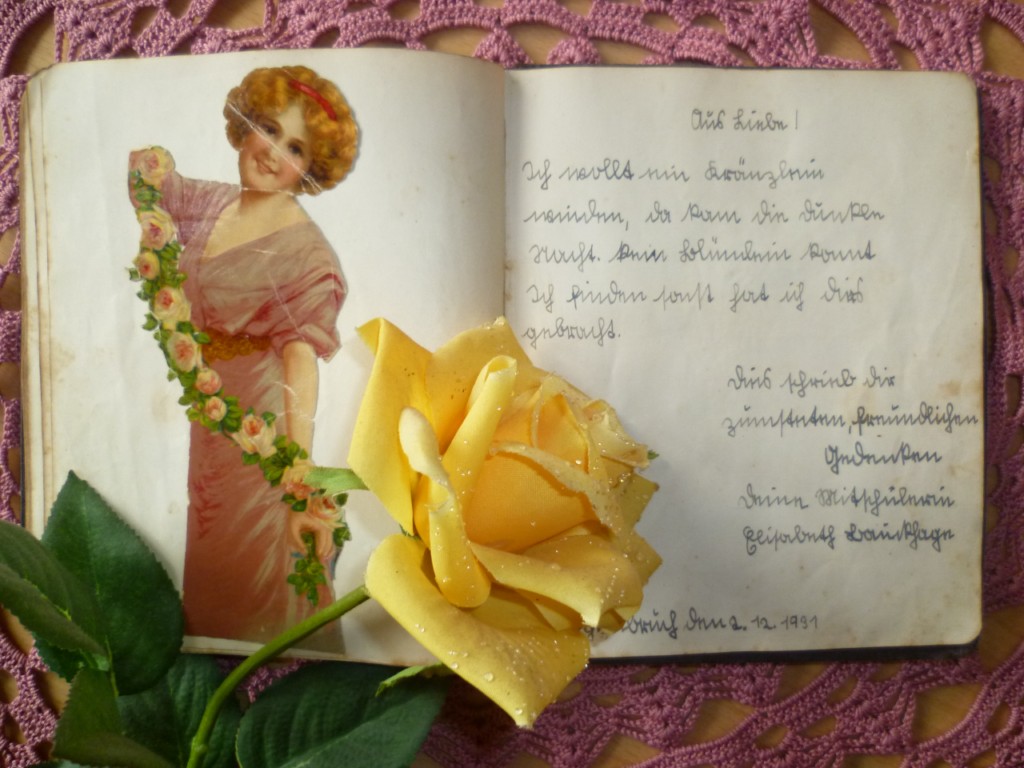 Aus Liebe!
Ich wollt ein Kränzlein
winden, da kam die dunkle
Nacht. Kein Blümlein konnt
Ich finden sonst hat ich dies
gebracht.
Dies schrieb dir
zum steten, freundlichen
Gedenken
deine Mitschülerin
Elisabeth Bauckhage
den 2. 12. 1931